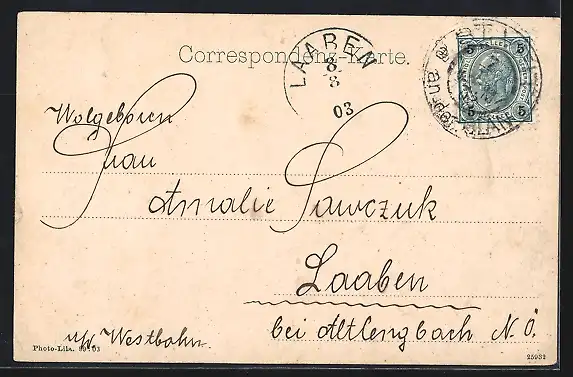 Correspondenz-Karte.
LAABEN
8
8
03
5 5
5 5
Wolgeboren
Frau
Amalie Pawczuk
Laaben
bei Altlengbach N. Ö.
Westbahn.
Photo-Lith. 99 03
25932